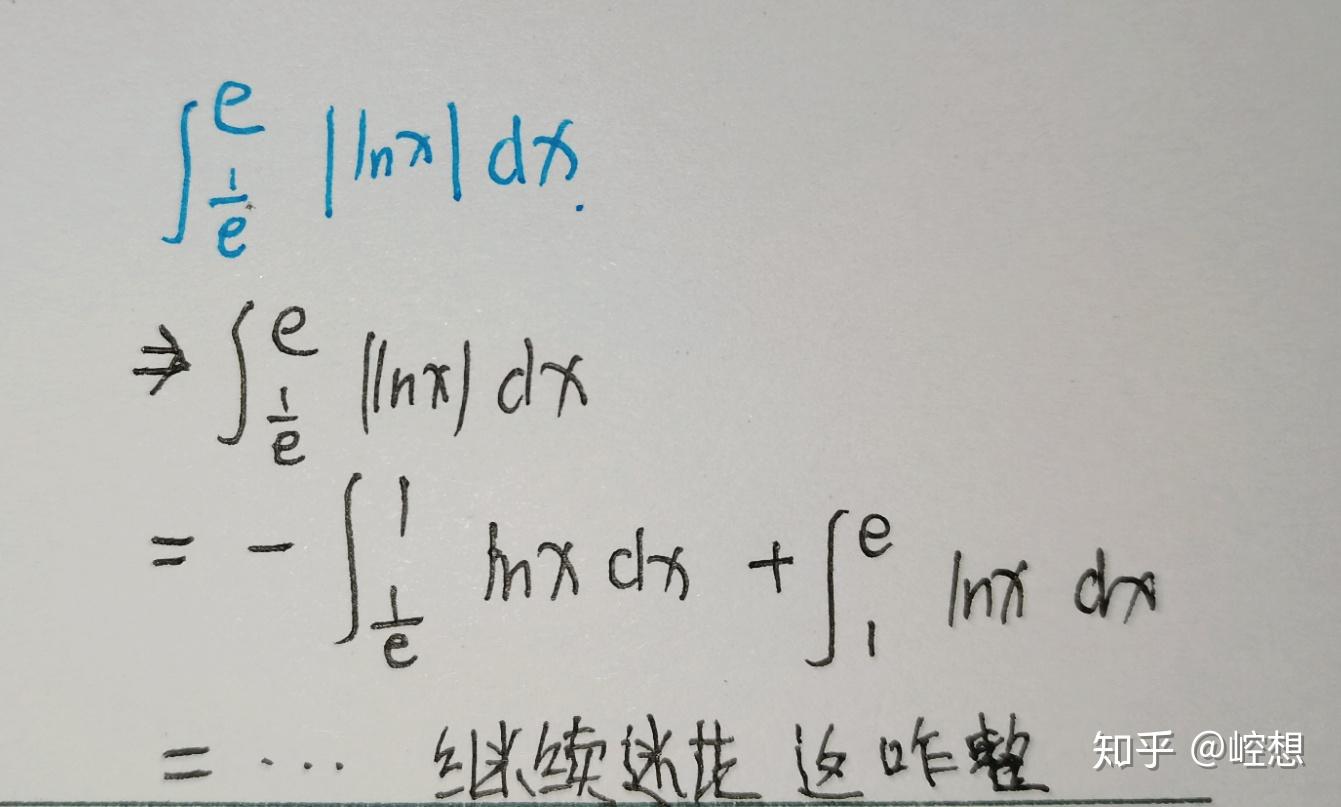 ∫_{1/e}^{e} |lnx| dx.
⇒ ∫_{1/e}^{e} |lnx| dx
= - ∫_{1/e}^{1} lnx dx + ∫_{1}^{e} lnx dx
= ... 继续迷茫 这咋整
知乎 @崆想